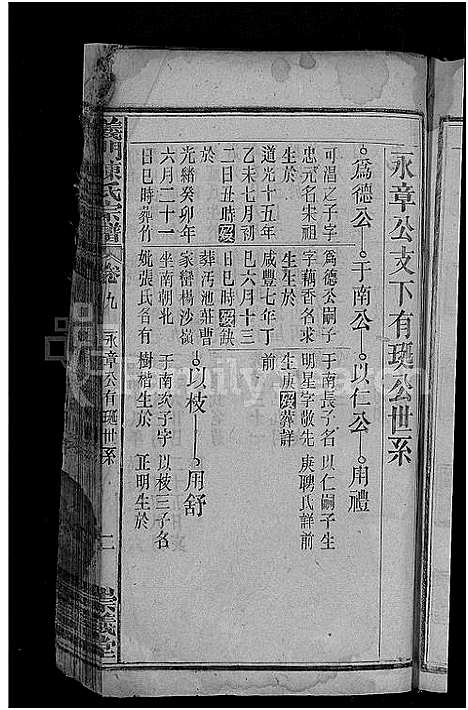 永章公支下有珽公世系
爲德公 于南公 以仁公 用禮
可淐之子字 爲德公嗣子 于南長子名 以仁嗣子生
忠元名朱祖 字藕香名求 明星字敬先 庚聘氏詳前
生於 生於 生庚歿葬詳
道光十五年 咸豐七年丁 前
乙未七月初 巳六月十三
二日丑時歿 日巳時歿
於 葬汚池莊曹 以枝 用舒
光緒癸卯年 家巒楊沙嶺
六月二十一 坐南朝北 于南次子字 以枝三子名
日巳時葬竹 妣張氏名有 樹楷生於 正明生於
義門陳氏宗譜
卷九
永章公有珽世系
二
崇義堂